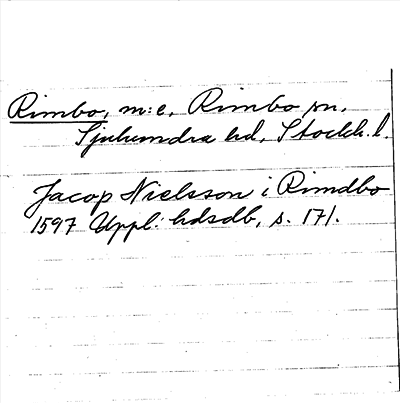 Rimbo, m:e, Rimbo sn,
Sjuhundra hd, Stockh. l.
Jacop Nielsson i Rimdbo
1597 Uppl. hdsdb, s. 171.